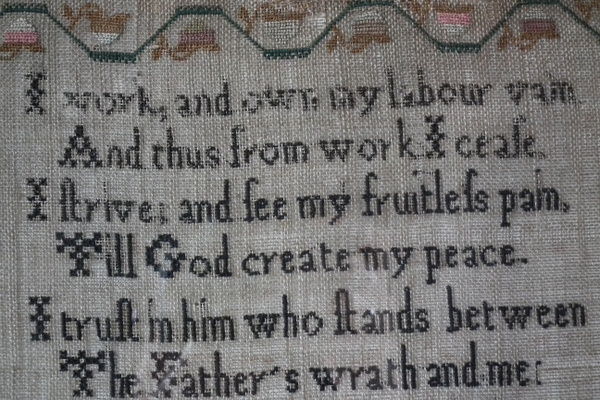 I work, and own my labour vain
And thus from work I ceaſe.
I ſtrive; and ſee my fruitleſs pain,
Till God create my peace.
I truſt in him who ſtands between
The Father's wrath and me: